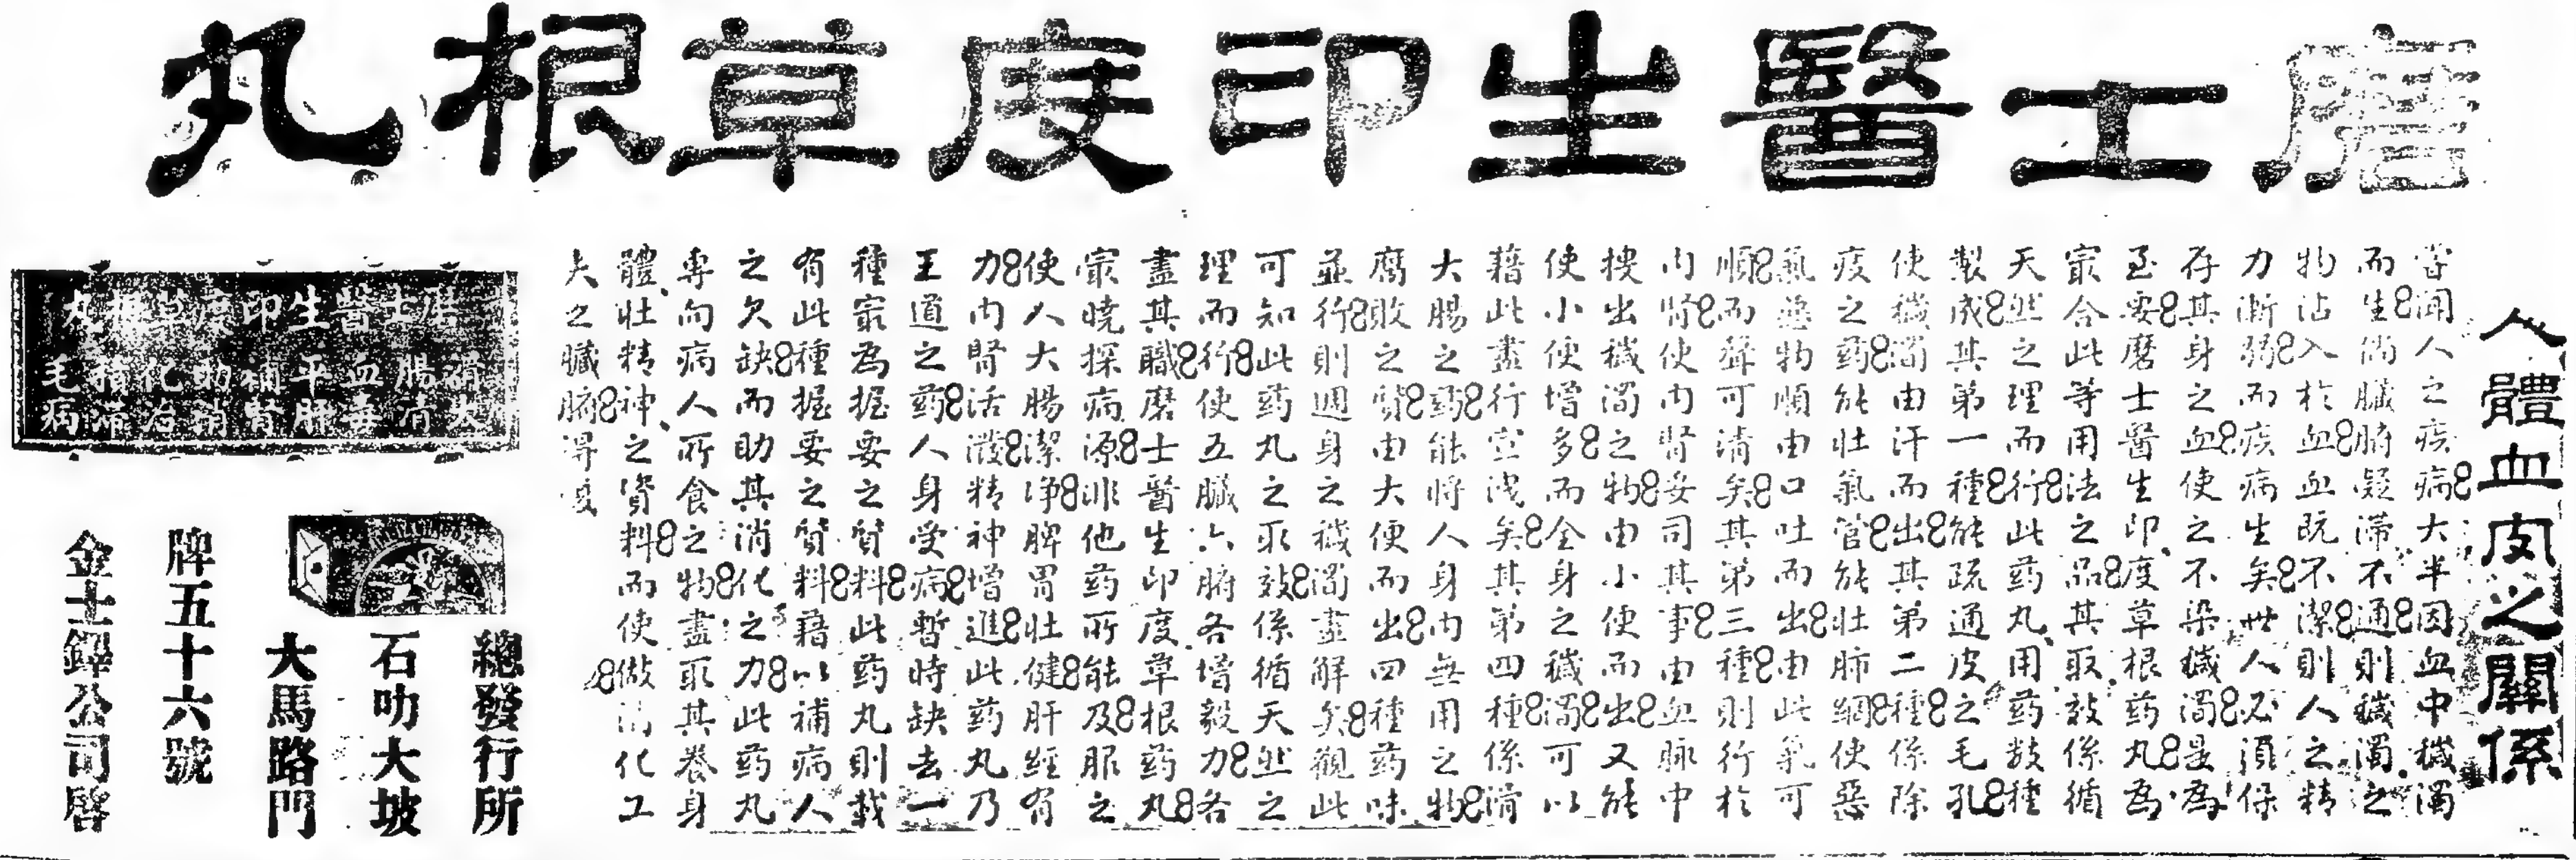 磨士醫生印度草根丸
人體血皮之關係
嘗聞人之疾病大半因血中穢濁
而生尚臟腑凝滯不通則穢濁之
物沾入於血血既不潔則人之精
力漸弱而疾病生矣世人必須保
存其身之血使之不染穢濁是為
至要磨士醫生印度草根药丸為
最合此等用法之品其取效係循
天然之理而行此药丸用药数種
製成其第一種能疏通皮之毛孔
使穢濁由汗而出其第二種係除
痰之药能壮氣管能壮肺網使惡
氣惡物順由口吐而出由此氣可
順而聲可清矣其第三種則行於
内腎使内腎妥司其事由血脉中
搜出穢濁之物由小便而出又能
使小便增多而全身之穢濁可以
藉此盡行空洩矣其第四種係清
大腸之药能将人身内無用之物
腐敗之質由大便而出四種药味
並行則週身之穢濁盡解矣觀此
可知此药丸之取效係循天然之
理而行使五臟六腑各增毅力各
盡其職磨士醫生印度草根药丸
最曉探病源非他药所能及服之
使人大腸潔净脾胃壮健肝經有
力内腎活潑精神增進此药丸乃
王道之药人身受病暫時缺去一
種最為握要之質料此药丸則載
有此種握要之質料藉以補病人
之欠缺而助其消化之力此药丸
專向病人所食之物盡取其養身
體壮精神之資料而使做消化工
夫之臟腑得
丸根草度印生醫士
毛 化助補平血腸
病 毒清
總發行所
石叻大坡
大馬路門
牌五十六號
金士鐸公司啓